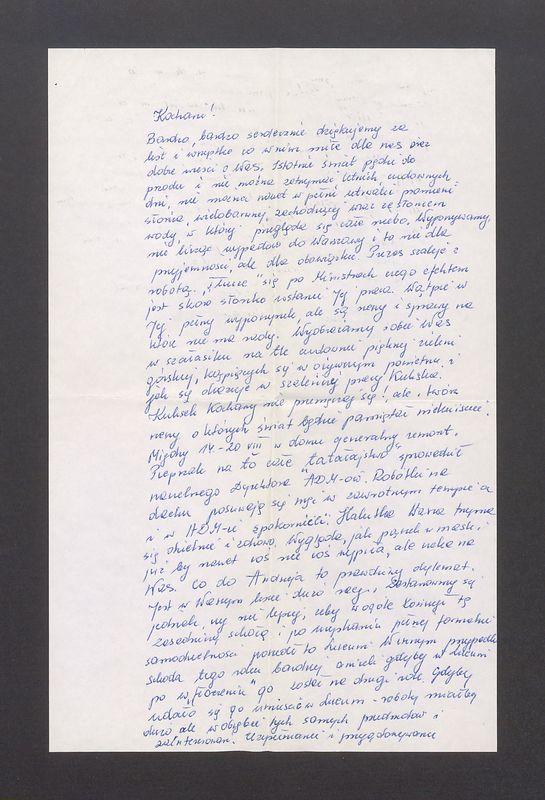 Kochani!
Bardzo, bardzo serdecznie dziękujemy za
list i wszystko co w nim miłe dla nas oraz
dobre wieści o Was. Istotnie świat pędzi do
przodu i nie można zatrzymać letnich, cudownych
dni, nie można nawet w pełni utrwalić promieni
słońca, wielobarwnej, zachodzącej wraz ze słońcem
wody, w której przegląda się całe niebo. Wypoczywamy
nie licząc wypadów do Warszawy i to nie dla
przyjemności, ale dla obowiązku. Prezes szaleje z
robotą. Tłucze się po Ministrach czego efektem
jest skoro słonko wstanie Jej praca. Wątpię w
Jej pełny wypoczynek, ale są rzeczy i sprawy na
które nie ma rady. Wyobrażamy sobie Was
w szałasiku na tle cudownej pięknej zieleni
górskiej, kąpiących się w ożywczym powietrzu i
jak się okazuje w szaleńczej pracy Kubuśka.
Kubusek Kochany nie przemęczaj się, ale twórz
rzeczy o których świat będzie pamiętał wiekuiście.
Mięliśmy 14-20 VIII w domu generalny remont.
Pieprzak na to całe "tatałajstwo" sprowadził
naczelnego Dyrektora ADM-ów. Robótki na
dachu posuwają się w zawrotnym tempie a
w ADM-ie spokornieli. Halutka Warsa trzyma
się dzielnie i zdrowo. Wygląda, jak pączek w maśle.
już by nawet coś nie coś wypiła, ale czeka na
Was. Co do Andrzeja to prawdziwy dylemat.
Jest w Waszym liście dużo racji, zastanówmy się
jednak, czy nie lepiej, żeby w ogóle kończył tę
zasadniczą szkołę i po uzyskaniu pełnej formalnej
samodzielności poszedł do liceum. W innym przypadku
szkoda tego roku bardziej aniżeli gdyby w liceum
po w "tłoczeniu" go został na drugi rok. Gdyby
udało się go umieścić w liceum - roboty miałby
dużo ale w obrębie tych samych przedmiotów i
zainteresowań. Uzupełnianie i przygotowywanie